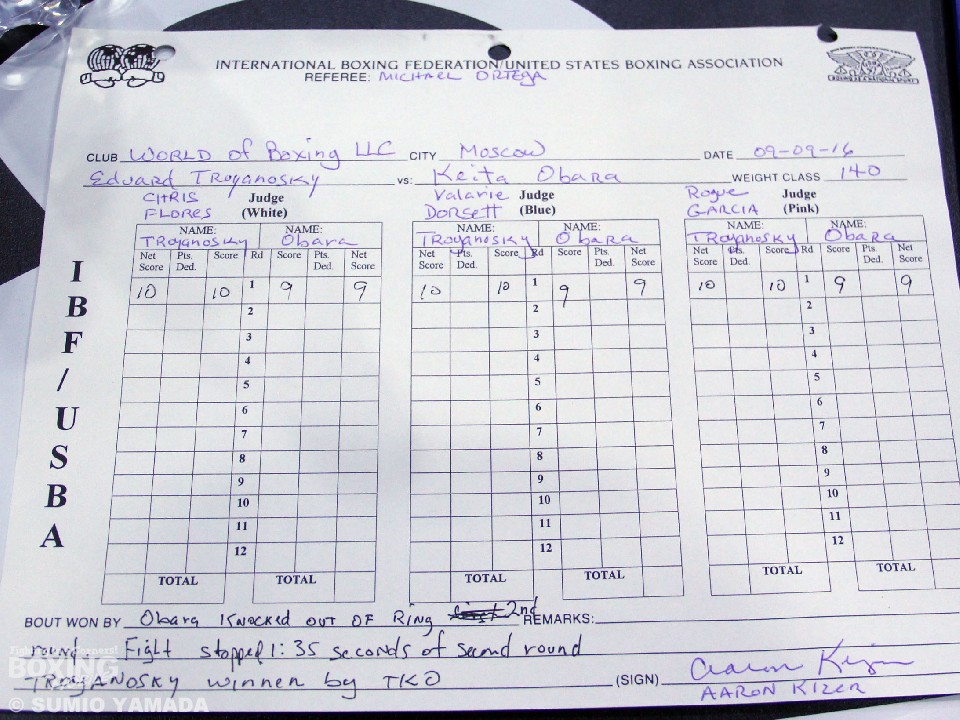 INTERNATIONAL BOXING FEDERATION/UNITED STATES BOXING ASSOCIATION
REFEREE: MICHAEL ORTEGA
CLUB WORLD of Boxing LLC CITY Moscow DATE 09-09-16
Eduard Troyanosky vs: Keita Obara WEIGHT CLASS 140
CHRIS FLORES Judge (White)
Valarie Dorsett Judge (Blue)
Rogue GARCIA Judge (Pink)
NAME: Troyanosky NAME: Obara
NAME: Troyanosky NAME: Obara
NAME: Troyanosky NAME: Obara
Net Score Pts. Ded. Score Rd Score Pts. Ded. Net Score
Net Score Pts. Ded. Score Rd Score Pts. Ded. Net Score
Net Score Pts. Ded. Score Rd Score Pts. Ded. Net Score
10 10 1 9 9 10 10 1 9 9 10 10 1 9 9
2 2 2
3 3 3
4 4 4
5 5 5
6 6 6
7 7 7
8 8 8
9 9 9
10 10 10
11 11 11
12 12 12
TOTAL TOTAL TOTAL TOTAL TOTAL TOTAL
IBF/USBA
BOUT WON BY Obara Knocked out of Ring 2nd REMARKS:
round Fight stopped 1:35 seconds of second round
TROYANOSKY winner by TKO (SIGN) Aaron Kizer
AARON KIZER
BOXING
© SUMIO YAMADA